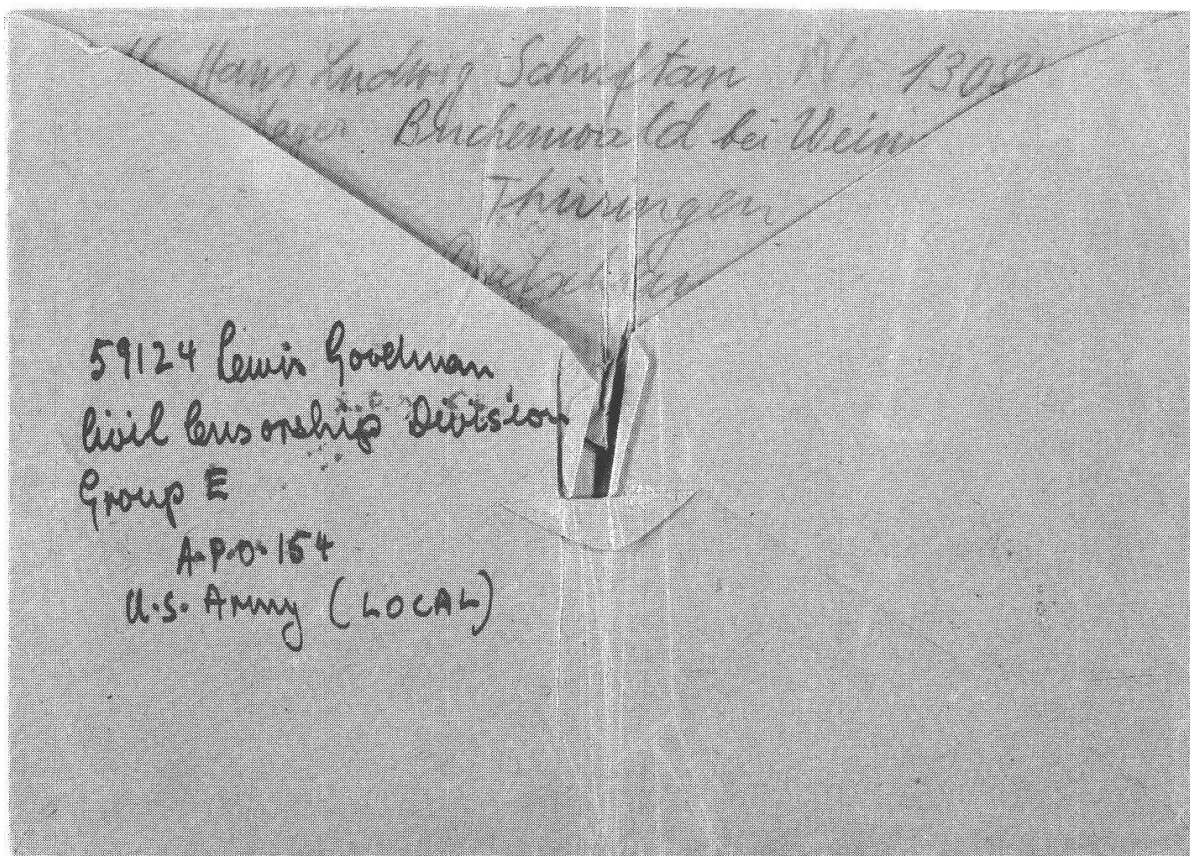 Hans Ludwig Schuftan Nr 1309
Lager Buchenwald bei Weim
Thüringen
59124 Lewis Goodman
Civil Censorship Division
Group E
A.P.O. 154
U.S. Army (LOCAL)